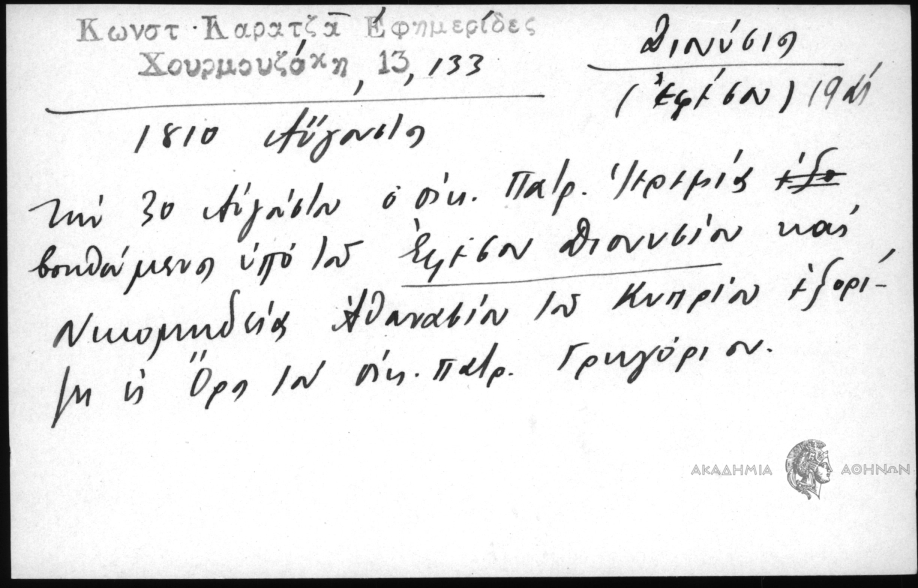 Κωνστ. Καρατζᾶ Ἐφημερίδες
Χουρμουζάκη, 13, 133
Διονύσιος
(Ἐφέσου) 19ος
1810 Αὔγουστος
Τὴν 30 Αὐγούστου ὁ οἰκ. Πατρ. Ἱερεμίας ἐξο
βοηθούμενος ὑπὸ τοῦ Ἐφέσου Διονυσίου καὶ
Νικομηδείας Ἀθανασίου τοῦ Κυπρίου ἐξορί-
ζει εἰς Ὄρος τὸν οἰκ. πατρ. Γρηγόριον.
ΑΚΑΔΗΜΙΑ ΑΘΗΝΩΝ